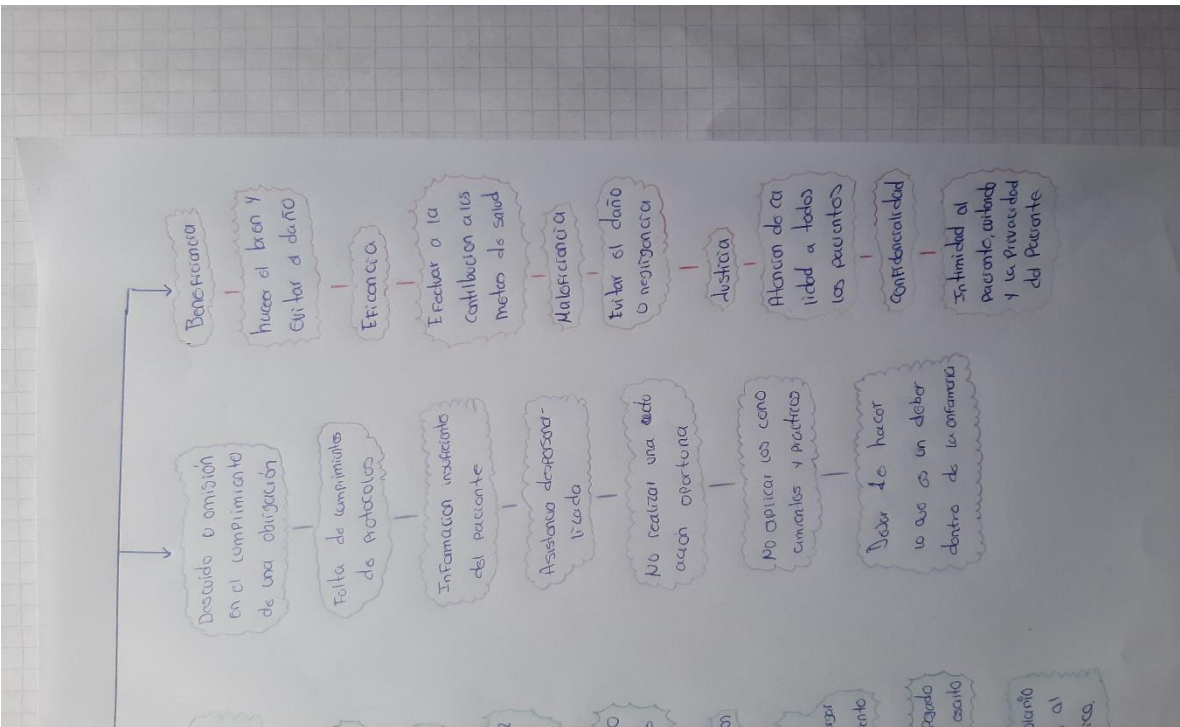 mento
escrito
al
Descuido u omisión
en el cumplimiento
de una obligación
Falta de cumplimientos
de protocolos
Informacion insuficiente
del paciente
Asistencia despersona-
licada
No realizar una
ación oportuna
No aplicar los cono
cimientos y practicas
Dejar de hacer
lo que es un deber
dentro de la enfermeria
Beneficiencia
hacer el bien y
Evitar el daño
Eficencia
Efectuar a la
Contribucion a las
metas de salud
Maleficiencia
Evitar el daño
o negligencia
Justicia
Atencion de ca
lidad a todos
los pacientes
Confidencialidad
Intimidad al
paciente, evitando
y la privacidad
del Paciente